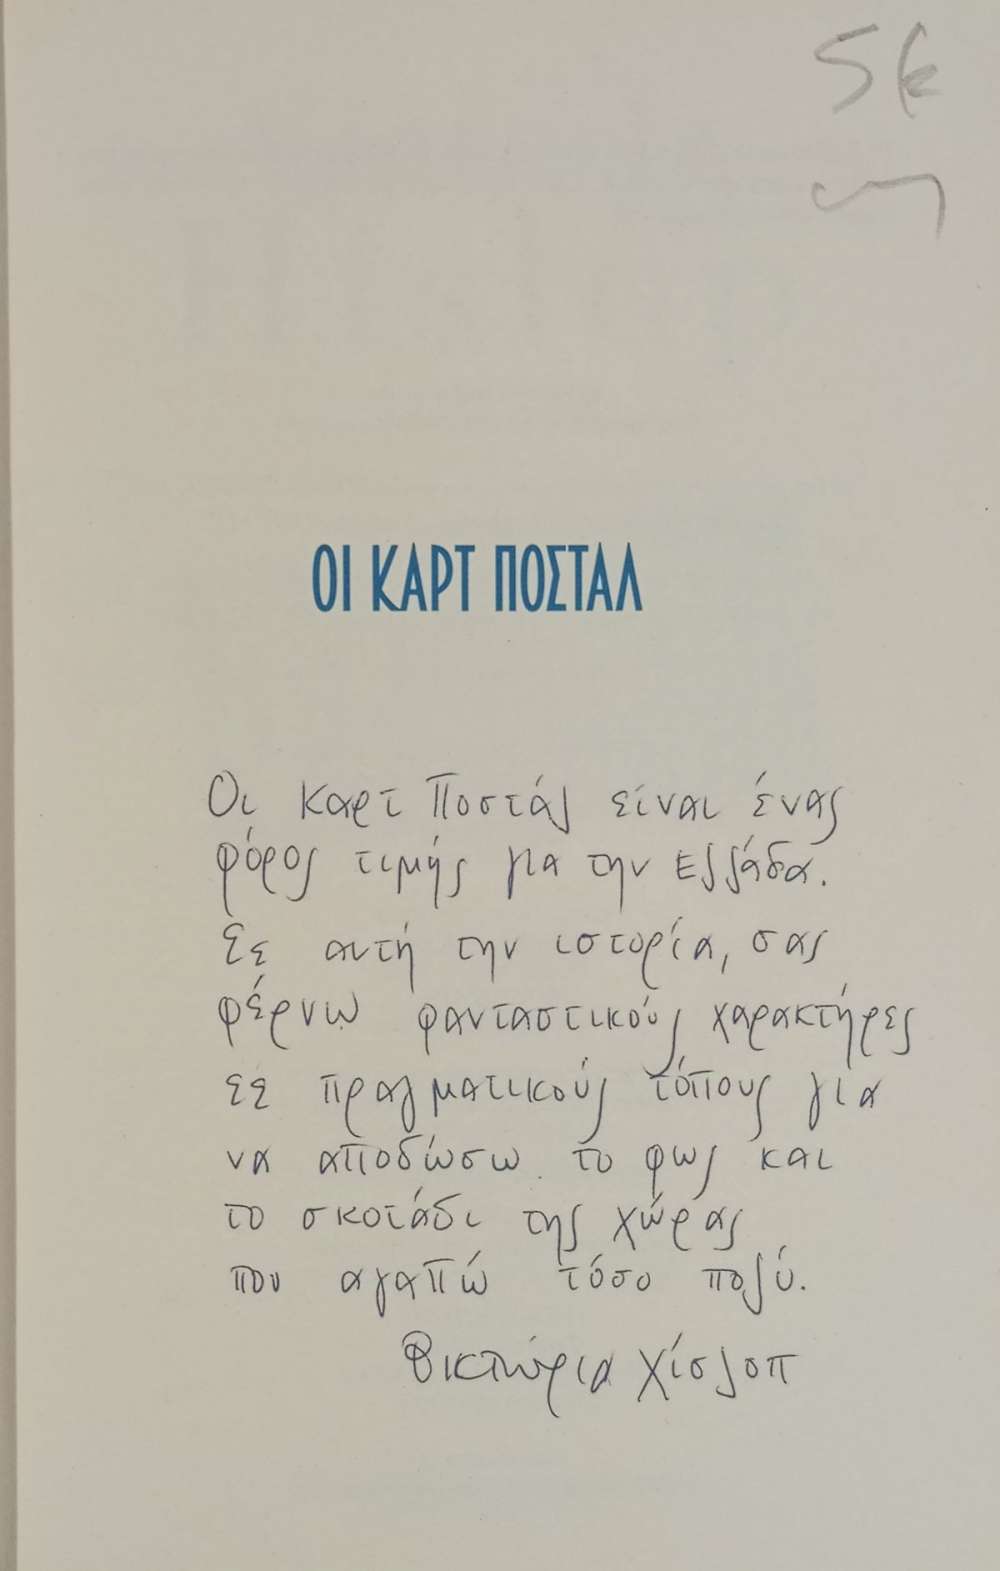 5€
ΟΙ ΚΑΡΤ ΠΟΣΤΑΛ
Οι Καρτ Ποστάλ είναι ένας
φόρος τιμής για την Ελλάδα.
Σε αυτή την ιστορία, σας
φέρνω φανταστικούς χαρακτήρες
σε πραγματικούς τόπους για
να αποδώσω το φως και
το σκοτάδι της χώρας
που αγαπώ τόσο πολύ.
Βικτώρια Χίσλοπ